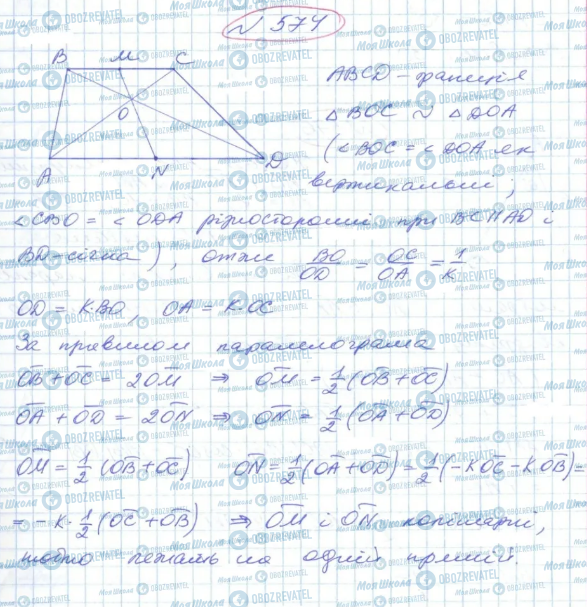 № 574
B M C
O
A N D
ABCD - трапеція
△BOC ∾ △DOA
(∠BOC = ∠DOA як
вертикальні,
∠CBO = ∠ODA різносторонні при BC∥AD і
BD-січна), отже BO/OD = OC/OA = 1/K
OD = K·BO, OA = K·OC
За правилом паралелограма
O͞B + O͞C = 2O͞M ⇒ O͞M = 1/2(O͞B + O͞C)
O͞A + O͞D = 2O͞N ⇒ O͞N = 1/2(O͞A + O͞D)
O͞M = 1/2(O͞B + O͞C) O͞N = 1/2(O͞A + O͞D) = 1/2(-KO͞C - KO͞B) =
= -K·1/2(O͞C + O͞B) ⇒ O͞M і O͞N колінарні,
тобто лежать на одній прямій.
МояШкола OBOZREVATEL